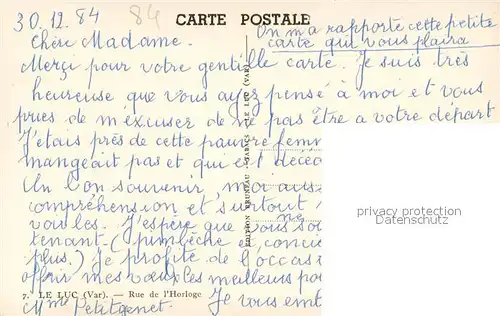 30.12.84 84 CARTE POSTALE
On m'a rapporté cette petite
carte qui vous plaira
Chère Madame.
Merçi pour votre gentille carte. Je suis très
heureuse que vous ayez pensé à moi et vous
pries de m'excuser de ne pas être a votre départ
J'etais près de cette pauvre femm
mangeait pas et qui est décéd
Un bon souvenir, moi aus
compréhension et surtout
voul les. J'espère que vous so
ne
tenant (pimbêche et concie
plus.) Je profite de l'occas
offrir mes vœux les meilleurs po
7. LE LUC (Var). — Rue de l'Horloge
Je vous emb
Mme Petitgenet.
EDITION BRUNEAU - TABACS - LE LUC (VAR)
privacy protection
Datenschutz